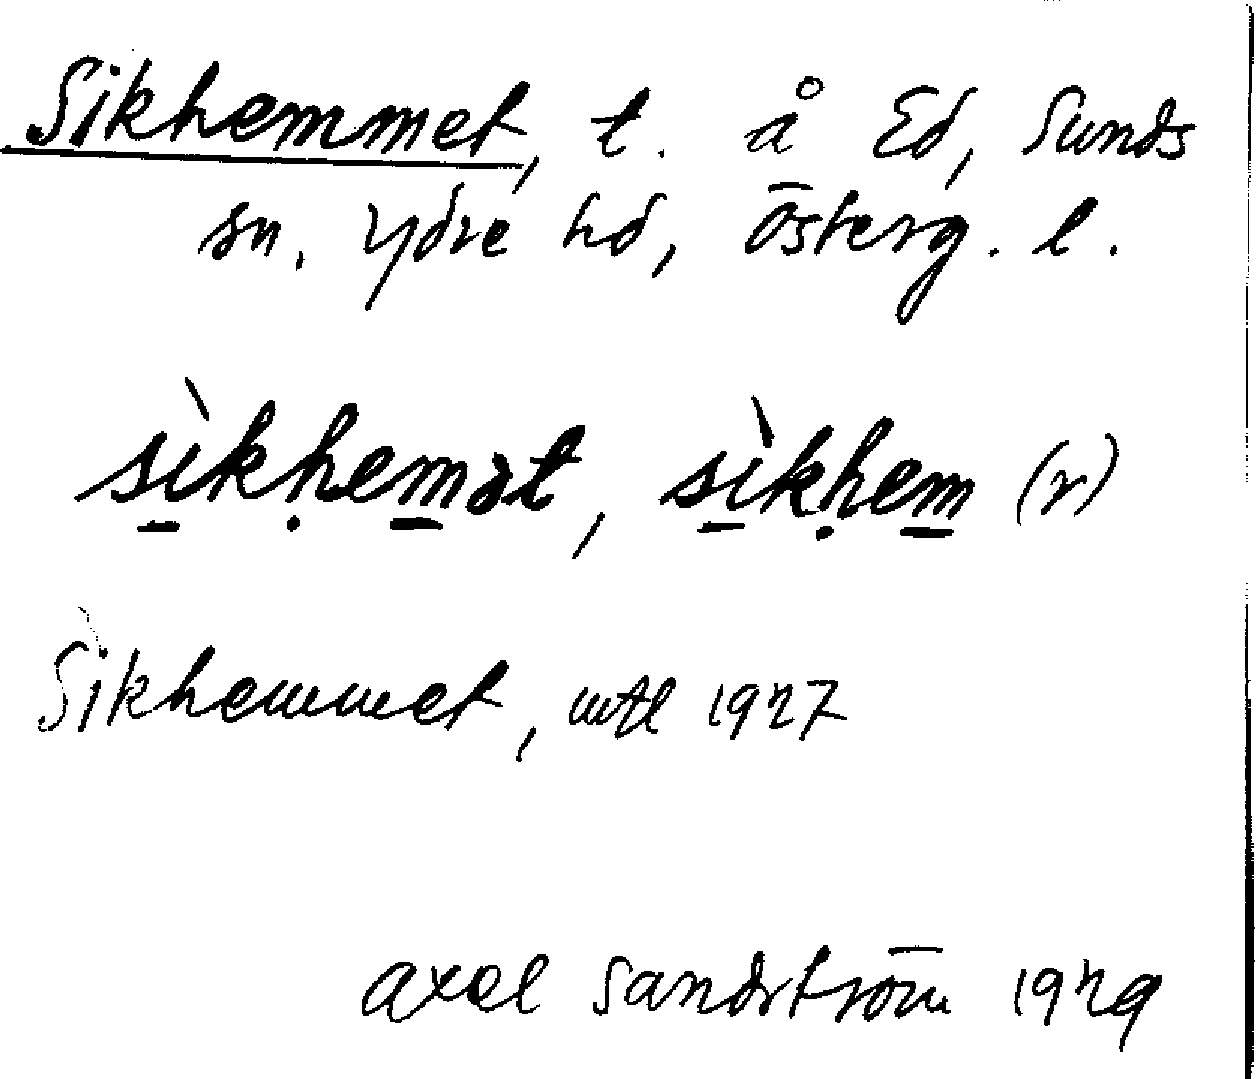 Sikhemmet, t. å Ed, Sunds
sn. Ydre hd, Österg. l.
sìkḥemət, sìkḥem (r)
Sikhemmet, mtl 1927
Axel Sandström 1929